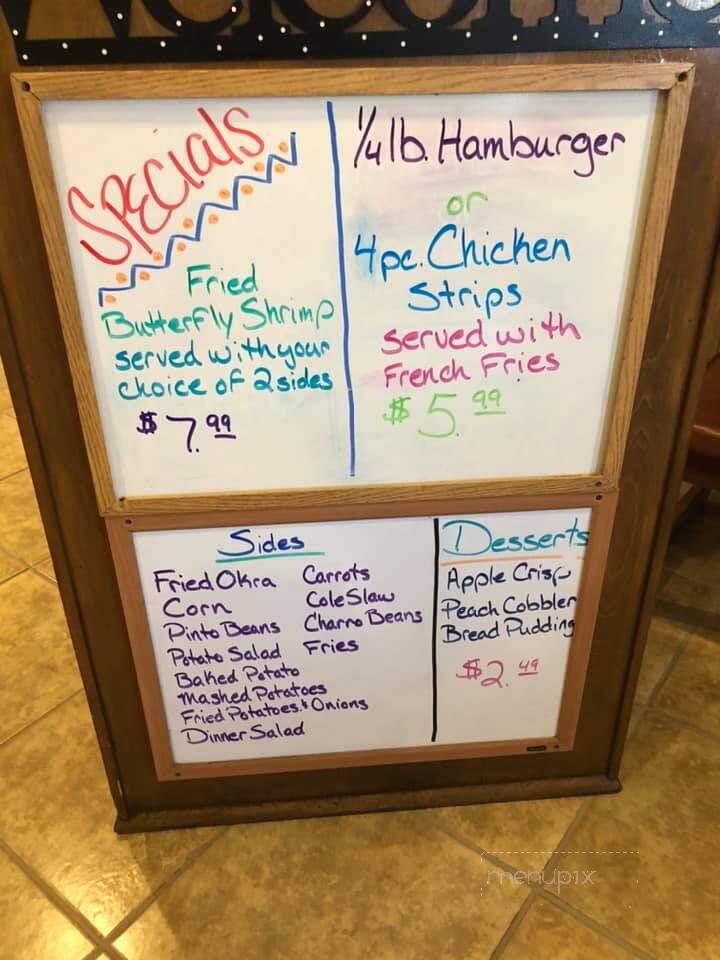 Welcome
Specials
Fried
Butterfly Shrimp
served with your
choice of 2 sides
$7.99
1/4 lb. Hamburger
or
4pc. Chicken
Strips
served with
French Fries
$5.99
Sides
Fried Okra
Corn
Pinto Beans
Potato Salad
Baked Potato
Mashed Potatoes
Fried Potatoes & Onions
Dinner Salad
Carrots
Cole Slaw
Charro Beans
Fries
Desserts
Apple Crisp
Peach Cobbler
Bread Pudding
$2.49
menupix